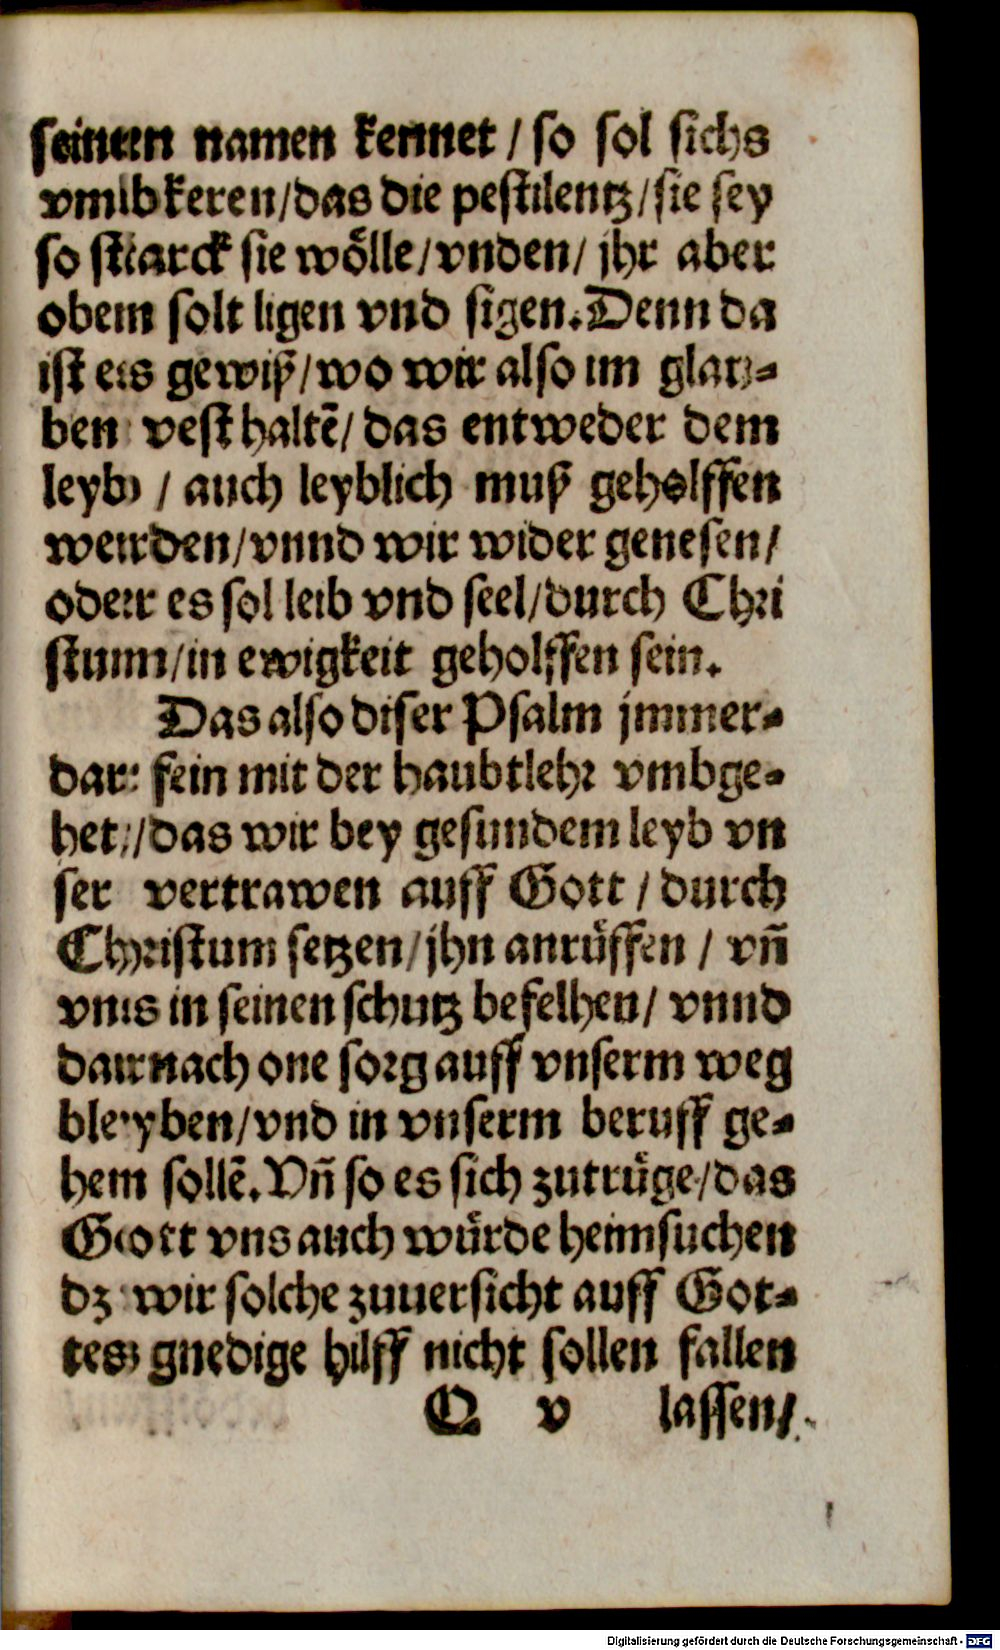 seinen namen kennet / so sol sichs
vmbkeren/das die pestilentz/sie sey
so starck sie wölle/vnden/ jhr aber
oben solt ligen vnd sigen. Denn da
ist es gewiß/wo wir also im glau-
ben vest haltē/ das entweder dem
leyb / auch leyblich muß geholffen
werden/vnnd wir wider genesen/
oder es sol leib vnd seel/durch Chri
stum/in ewigkeit geholffen sein.
Das also diser Psalm jmmer-
dar fein mit der haubtlehr vmbge-
het/das wir bey gesundem leyb vn
ser vertrawen auff Gott / durch
Christum setzen/jhn anrüffen / vñ
vns in seinen schutz befelhen/ vnnd
darnach one sorg auff vnserm weg
bleyben/vnd in vnserm beruff ge-
hen sollē. Vñ so es sich zutrüge/das
Gott vns auch würde heimsuchen
dz wir solche zuuersicht auff Got-
tes gnedige hilff nicht sollen fallen
Q v lassen/
Digitalisierung gefördert durch die Deutsche Forschungsgemeinschaft - DFG